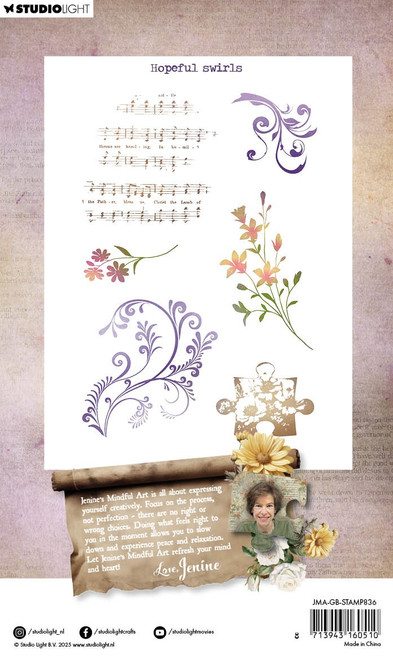 STUDIOLIGHT
Hopeful swirls
Jenine's Mindful Art is all about expressing
yourself creatively. Focus on the process,
not perfection - there are no right or
wrong choices. Doing what feels right to
you in the moment allows you to slow
down and experience peace and relaxation.
Let Jenine's Mindful Art refresh your mind
and heart!
Love, Jenine
JMA-GB-STAMP836
/studiolight_nl
/studiolightcrafts
/studiolightmovies
8 713943 160510
© Studio Light B.V. 2025 www.studiolight.nl
Made in China